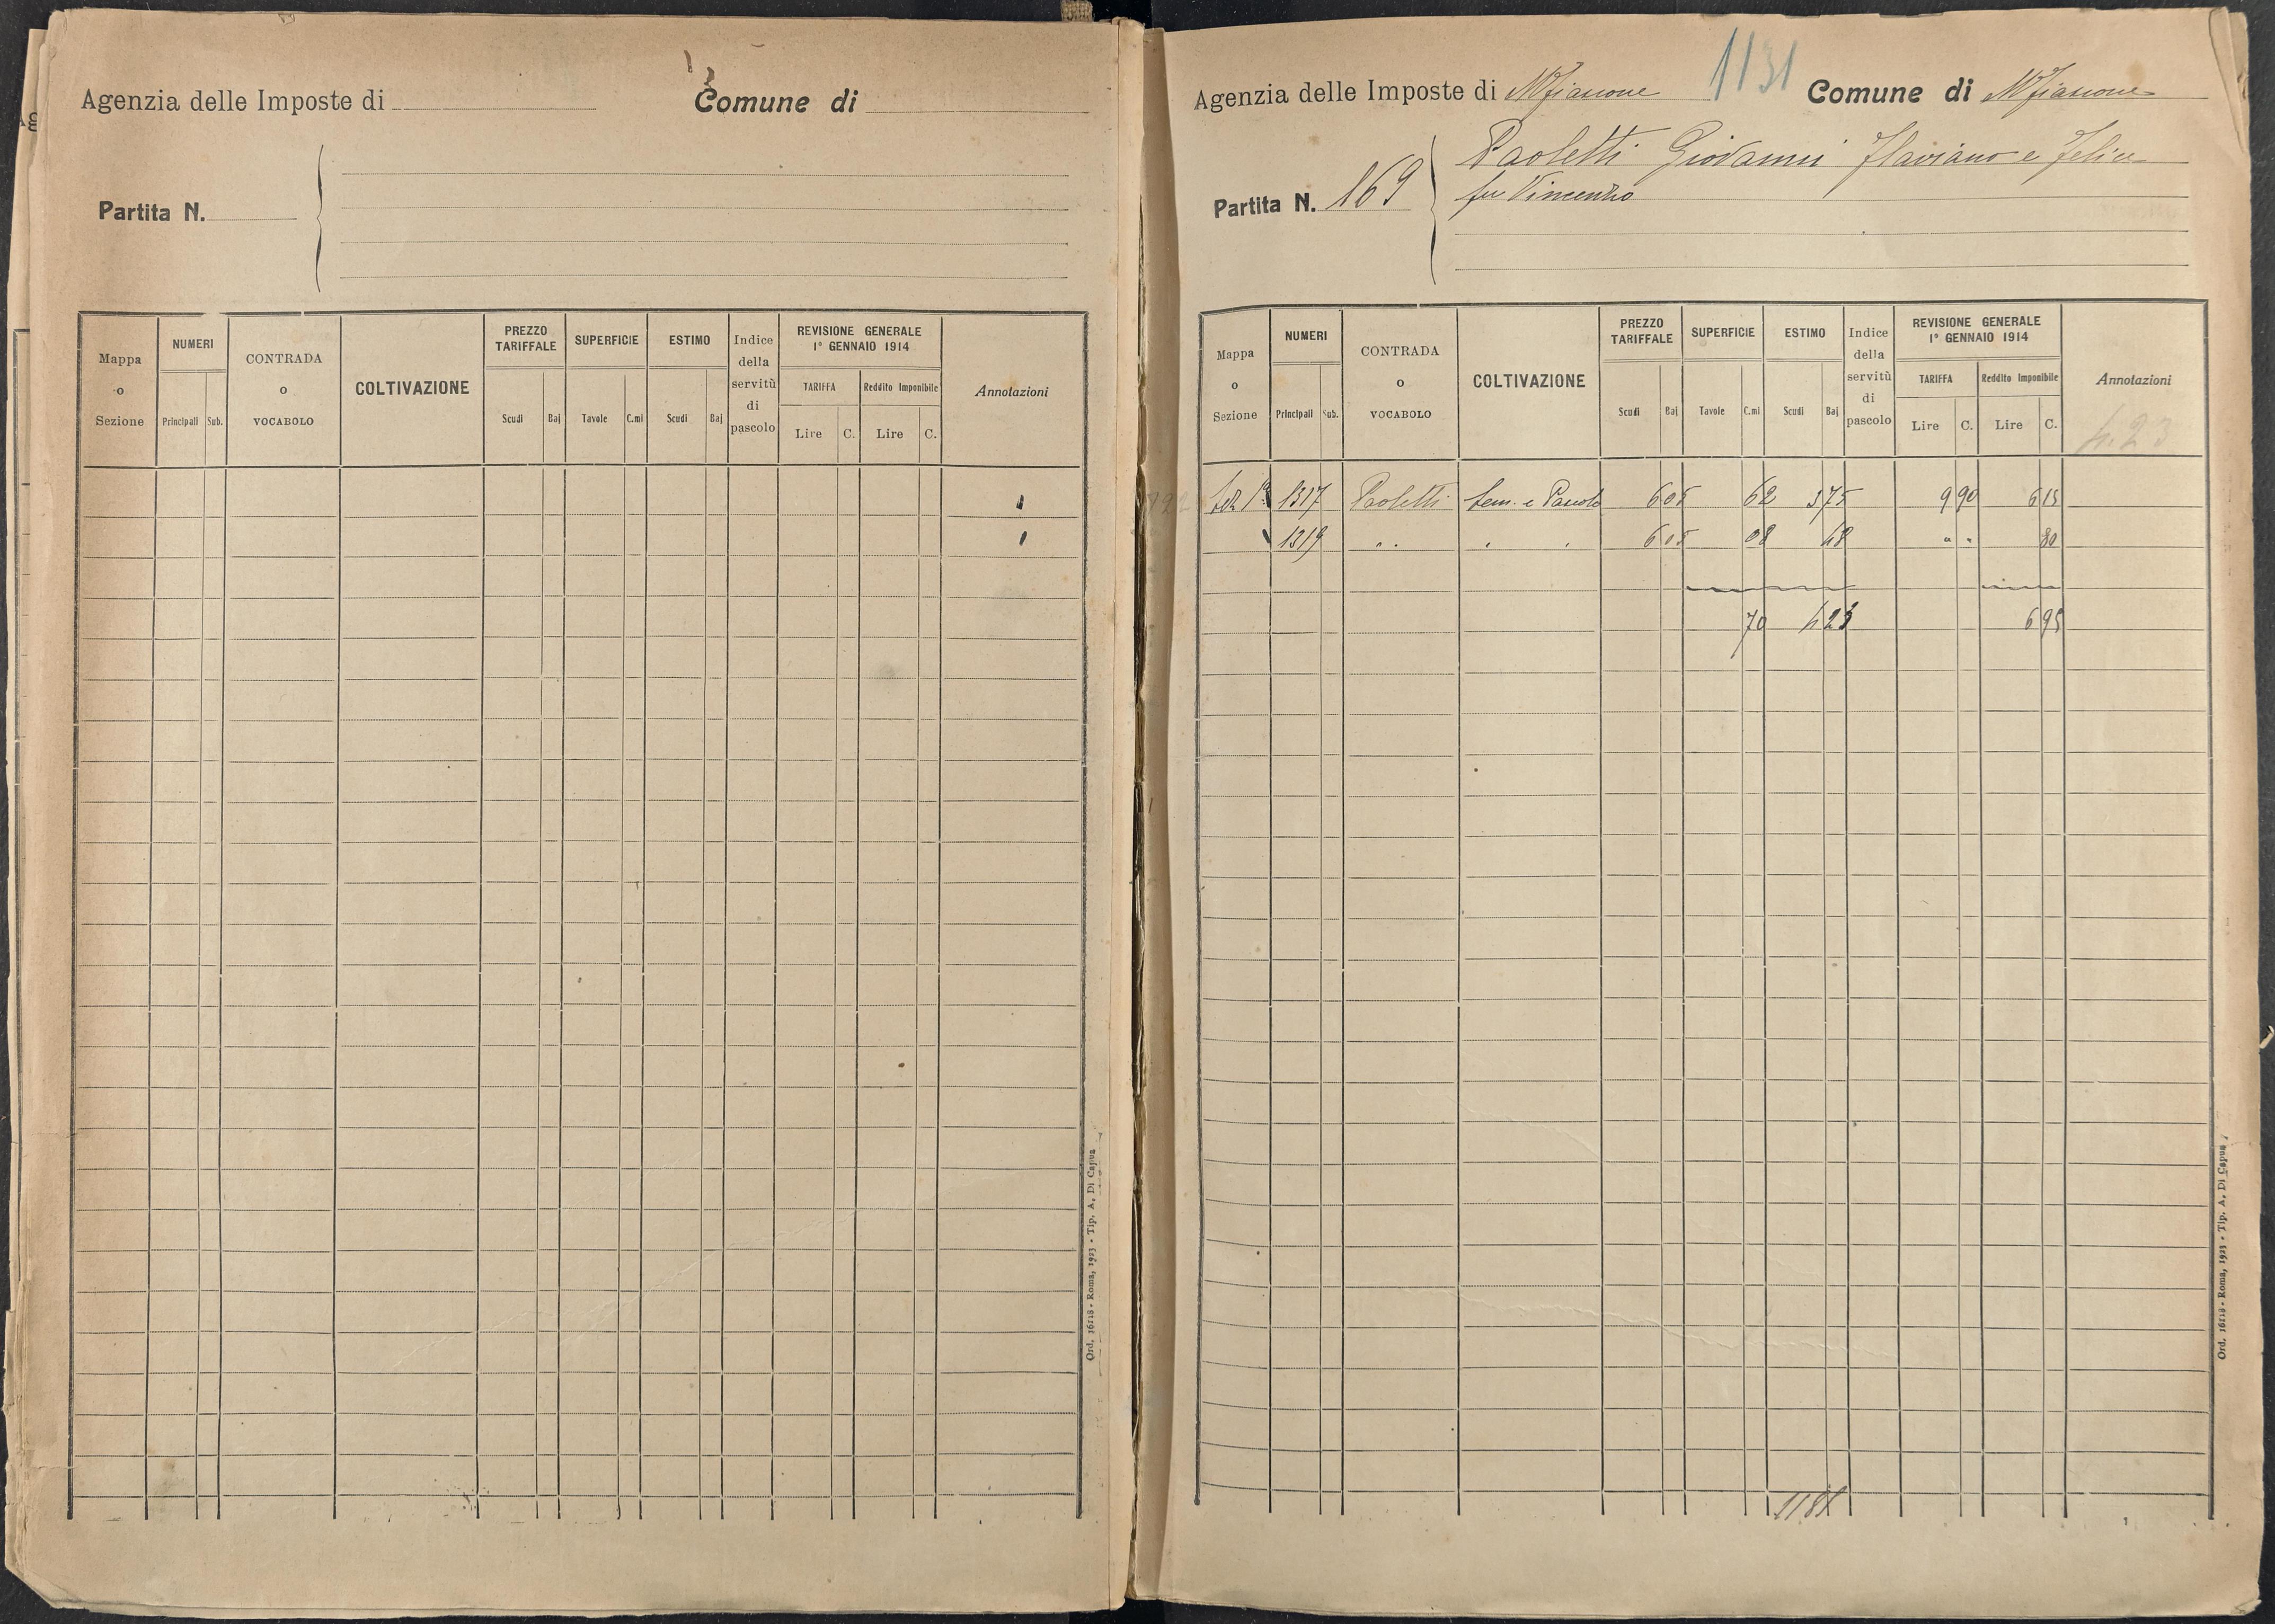 Agenzia delle Imposte di
Comune di
Partita N.
Mappa o Sezione
NUMERI
Principali Sub.
CONTRADA o VOCABOLO
COLTIVAZIONE
PREZZO TARIFFALE
Scudi Baj
SUPERFICIE
Tavole C.mi
ESTIMO
Scudi Baj
Indice della servitù di pascolo
REVISIONE GENERALE
1° GENNAIO 1914
TARIFFA
Lire C.
Reddito Imponibile
Lire C.
Annotazioni
Ord. 16118 - Roma, 1923 - Tip. A. Di Capua
1131
Agenzia delle Imposte di Mfiascone Comune di Mfiascone
Partita N. 169
Paoletti Giovanni Flaviano e Felice
fu Vincenzo
Mappa o Sezione
NUMERI
Principali Sub.
CONTRADA o VOCABOLO
COLTIVAZIONE
PREZZO TARIFFALE
Scudi Baj
SUPERFICIE
Tavole C.mi
ESTIMO
Scudi Baj
Indice della servitù di pascolo
REVISIONE GENERALE
1° GENNAIO 1914
TARIFFA
Lire C.
Reddito Imponibile
Lire C.
Annotazioni
4.23
Sez 1ª 1317 Paoletti Sem. e Pascolo 6 05 62 3 75 9 90 6 15
1319 " " " " 6 05 08 48 " " 80
70 4 23 6 95
Ord. 16118 - Roma, 1923 - Tip. A. Di Capua